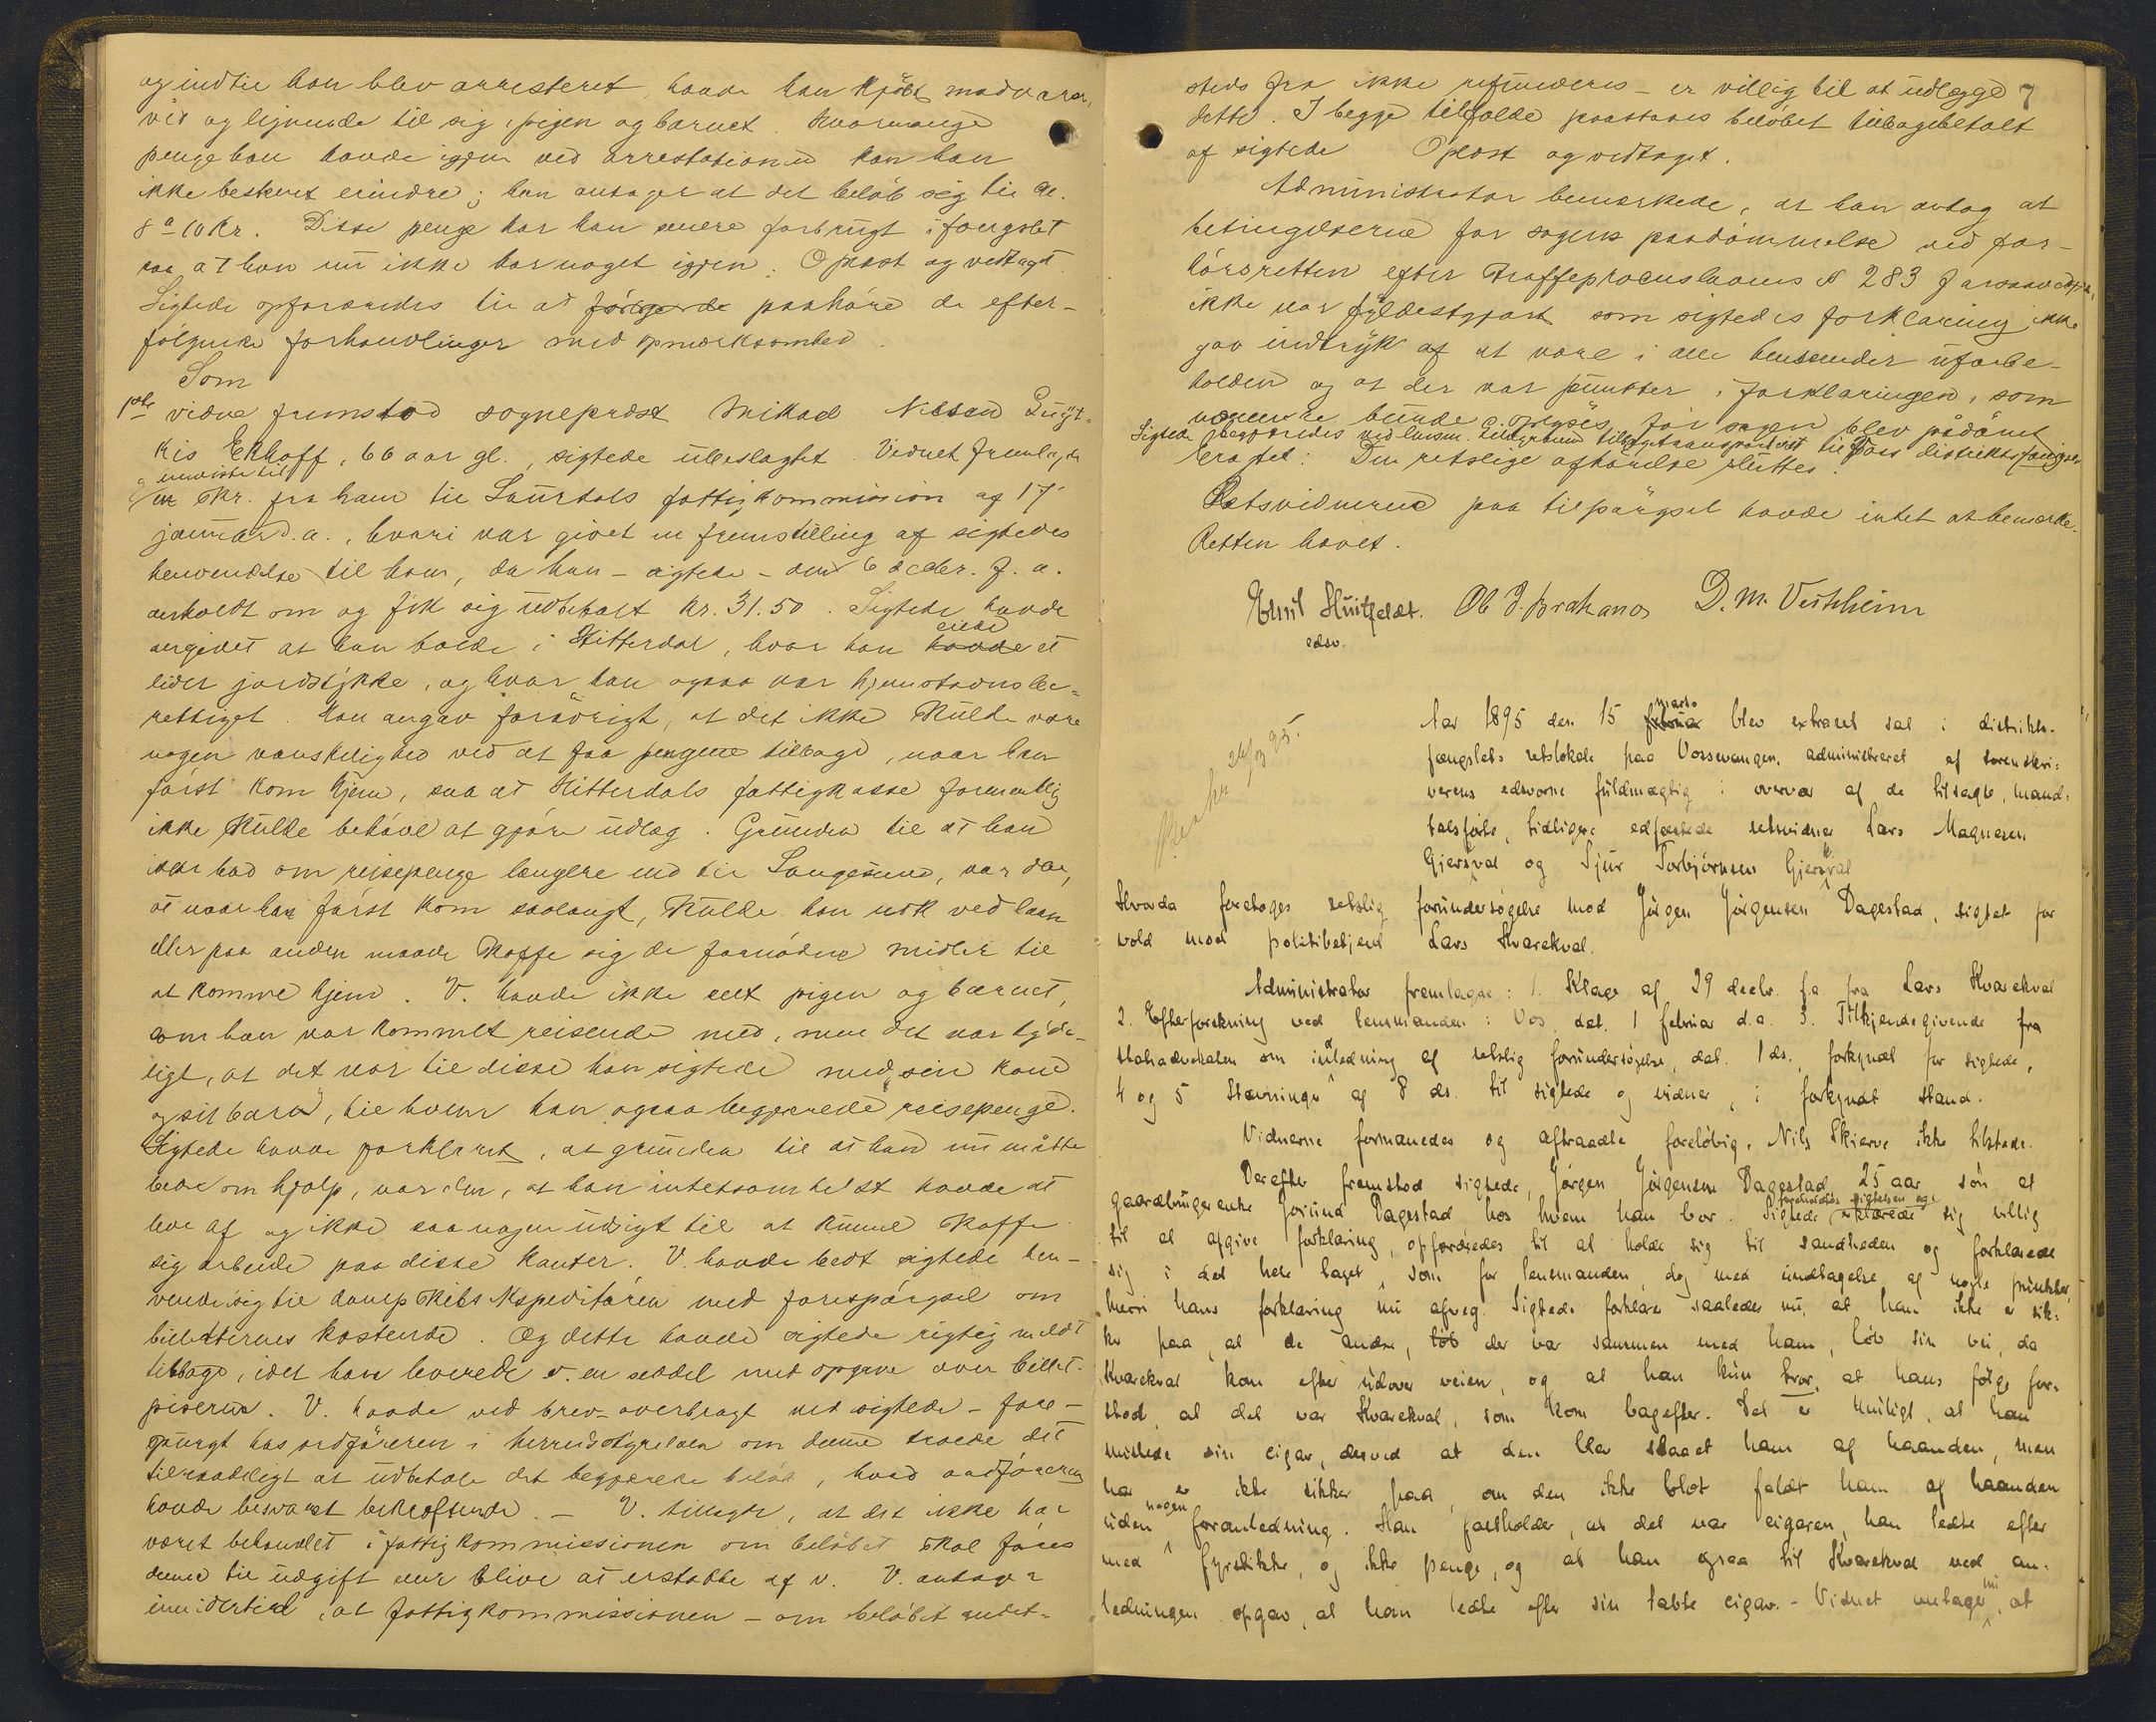 og indtil han blev arresteret havde han kjöbt madvarer,
ved og lignende til sig, pigen og barnet. Hvormange
penge han havde igjen ved arrestationen kan han
ikke bestemt erindre; han antager at det beløb sig til ca.
8 a 10 kr. Disse penge har han senere forbrugt i fængslet
saa at han nu ikke har noget igjen. Oplæst og vedtaget.
Sigtede opfordredes til at paahöre de efter-
følgende forhandlinger med opmærksomhed.
Som
1ste vidne fremstod sogneprest Mikael Nilsen
Ekhoff, 66 aar gl., sigtede ubeslægtet. Vidnet fremlagde
og henviste til
en skr. fra ham til Laurdals fattigkommission af 17
januar d.a., hvori var givet en fremstilling af sigtedes
henvendelse til ham, da han – sigtede – den 6 decbr. f.a.
anholdt om og fik sig udbetalt kr. 31.50. Sigtede havde
angivet at han boede i Hitterdal, hvor han havde eiede et
lidet jordstykke, og hvor han ogsaa var hjemstavnsbe-
rettiget. Han angav forövrigt, at det ikke skulde være
nogen vanskelighed ved at faa pengene tilbage, naar han
först kom hjem, saa at Hitterdals fattigkasse formentlig
ikke skulde behöve at gjöre udlæg. Grunden til at han
ikke bad om reisepenge længere end til Langesund, var den,
at naar han först kom saalangt, skulde han nok ved laan
eller paa anden maade skaffe sig de fornödne midler til
at komme hjem. V. havde ikke seet pigen og barnet,
som han var kommet reisende med, men det var tyde-
ligt, at det var til disse han sigtede med "sin kone
og sit barn", til hvem han ogsaa begjærede reisepenge.
Sigtede havde forklaret, at grunden til at han nu måtte
bede om hjælp, var den, at han intetsomhelst havde at
leve af og ikke saa nogen udsigt til at kunne skaffe
sig arbeide paa disse kanter. V. havde bedt sigtede hen-
vende sig til dampskibsekspeditören med forespörgsel om
billetternes kostende. Og dette havde sigtede rigtig meldt
tilbage, idet han leverede v. en seddel med opgave over billet-
priserne. V. havde ved brev – overbragt ved sigtede – fore-
spurgt hos ordföreren i herredstyrelsen om denne troede det
tilraadeligt at udbetale det begjærede belöb, hvad ordföreren
havde besvaret bekræftende. – V. tillægte, at det ikke har
været behandlet i fattigkommissionen om belöbet skal föres
denne til udgift eller blive at erstatte af v. V. antager
imidlertid, at fattigkommissionen – om belöbet andet-
steds fra ikke refunderes – er villig til at udlægge 7
dette. I begge tilfælde paastaaes belöbet tilbagebetalt
af sigtede. Oplæst og vedtaget.
Administrator bemærkede, at han antog at
betingelserne for sagens paadömmelse ved for-
hörsretten efter straffeproceslovens § 283
ikke var fyldestgjort som sigtedes forklaring ikke
gav indtryk af at være i alle henseender uforbe-
holden og at der var punkter i forklaringen, som
burde oplyses, för sagen blev pådömt
Sigtede begjæredes ved lensm. tilbagetransporteret til Voss distriktsfængsel
Den retslige afhörelse sluttes.
Retsvidnerne paa tilspörgsel havde intet at bemærke.
Retten hævet.
Emil Huitfeldt. Ol. J. Brækhus D. M. Vestrheim
edsv.
Aar 1895 den 15 februar mars blev extraret sat i distrikts-
fængslets retslokale paa Vossevangen, administreret af sorenskri-
verens edsvorne fuldmægtig i overvær af de tilsagte, mand-
talsførte, tidligere edfæstede retsvidner Lars Magnesen
Gjersvål og Sjur Torbjörnsen Gjersvål
Hvorda foretoges retslig forundersøgelse mod Jørgen Jørgensen Dagestad, sigtet for
vold mod politibetjent Lars Kvarekval.
Administrator fremlagde: 1. Klage af 29 decbr. f.a. fra Lars Kvarekval
2. Efterforskning ved lensmanden i Vos, dat. 1 februar d.a. 3. Tilkjendegivende fra
statsadvokaten om indledning af retslig forundersøgelse, dat. 1 ds. forkyndt for sigtede,
4 og 5 Stævninger af 8 ds. til sigtede og vidner, i forkyndt stand.
Vidnerne formanedes og aftraadte foreløbig. Nils Skjerve ikke tilstede.
Derefter fremstod sigtede, Jørgen Jørgensen Dagestad 25 aar, søn af
gaardbrugerenke Jorund Dagestad, hos hvem han bor. Sigtede foreholdtes sigtelsen og erklærede sig villig
til at afgive forklaring, opfordredes til at holde sig til sandheden og forklarede
sig i det hele taget, som for lensmanden, dog med undtagelse af nogle punkter,
hvori hans forklaring nu afveg. Sigtede forklarer saaledes nu, at han ikke er sik-
ker paa, at de andre, løb der var sammen med ham, løb sin vei, da
Kvarekval kom efter udover veien, og at han kun tror, at hans følge for-
stod, at det var Kvarekval, som kom bagefter. Det er muligt, at han
mistede sin cigar, derved at den blev slaaet ham af haanden, men
han er ikke sikker paa, om den ikke blot faldt ham af haanden
uden nogen foranledning. Han fastholder, at det var cigaren, han ledte efter
med fyrstikke, og ikke penge, og at han ogsaa til Kvarekval ved an-
ledningen opgav, at han ledte efter sin tabte cigar. – Vidnet antager nu, at